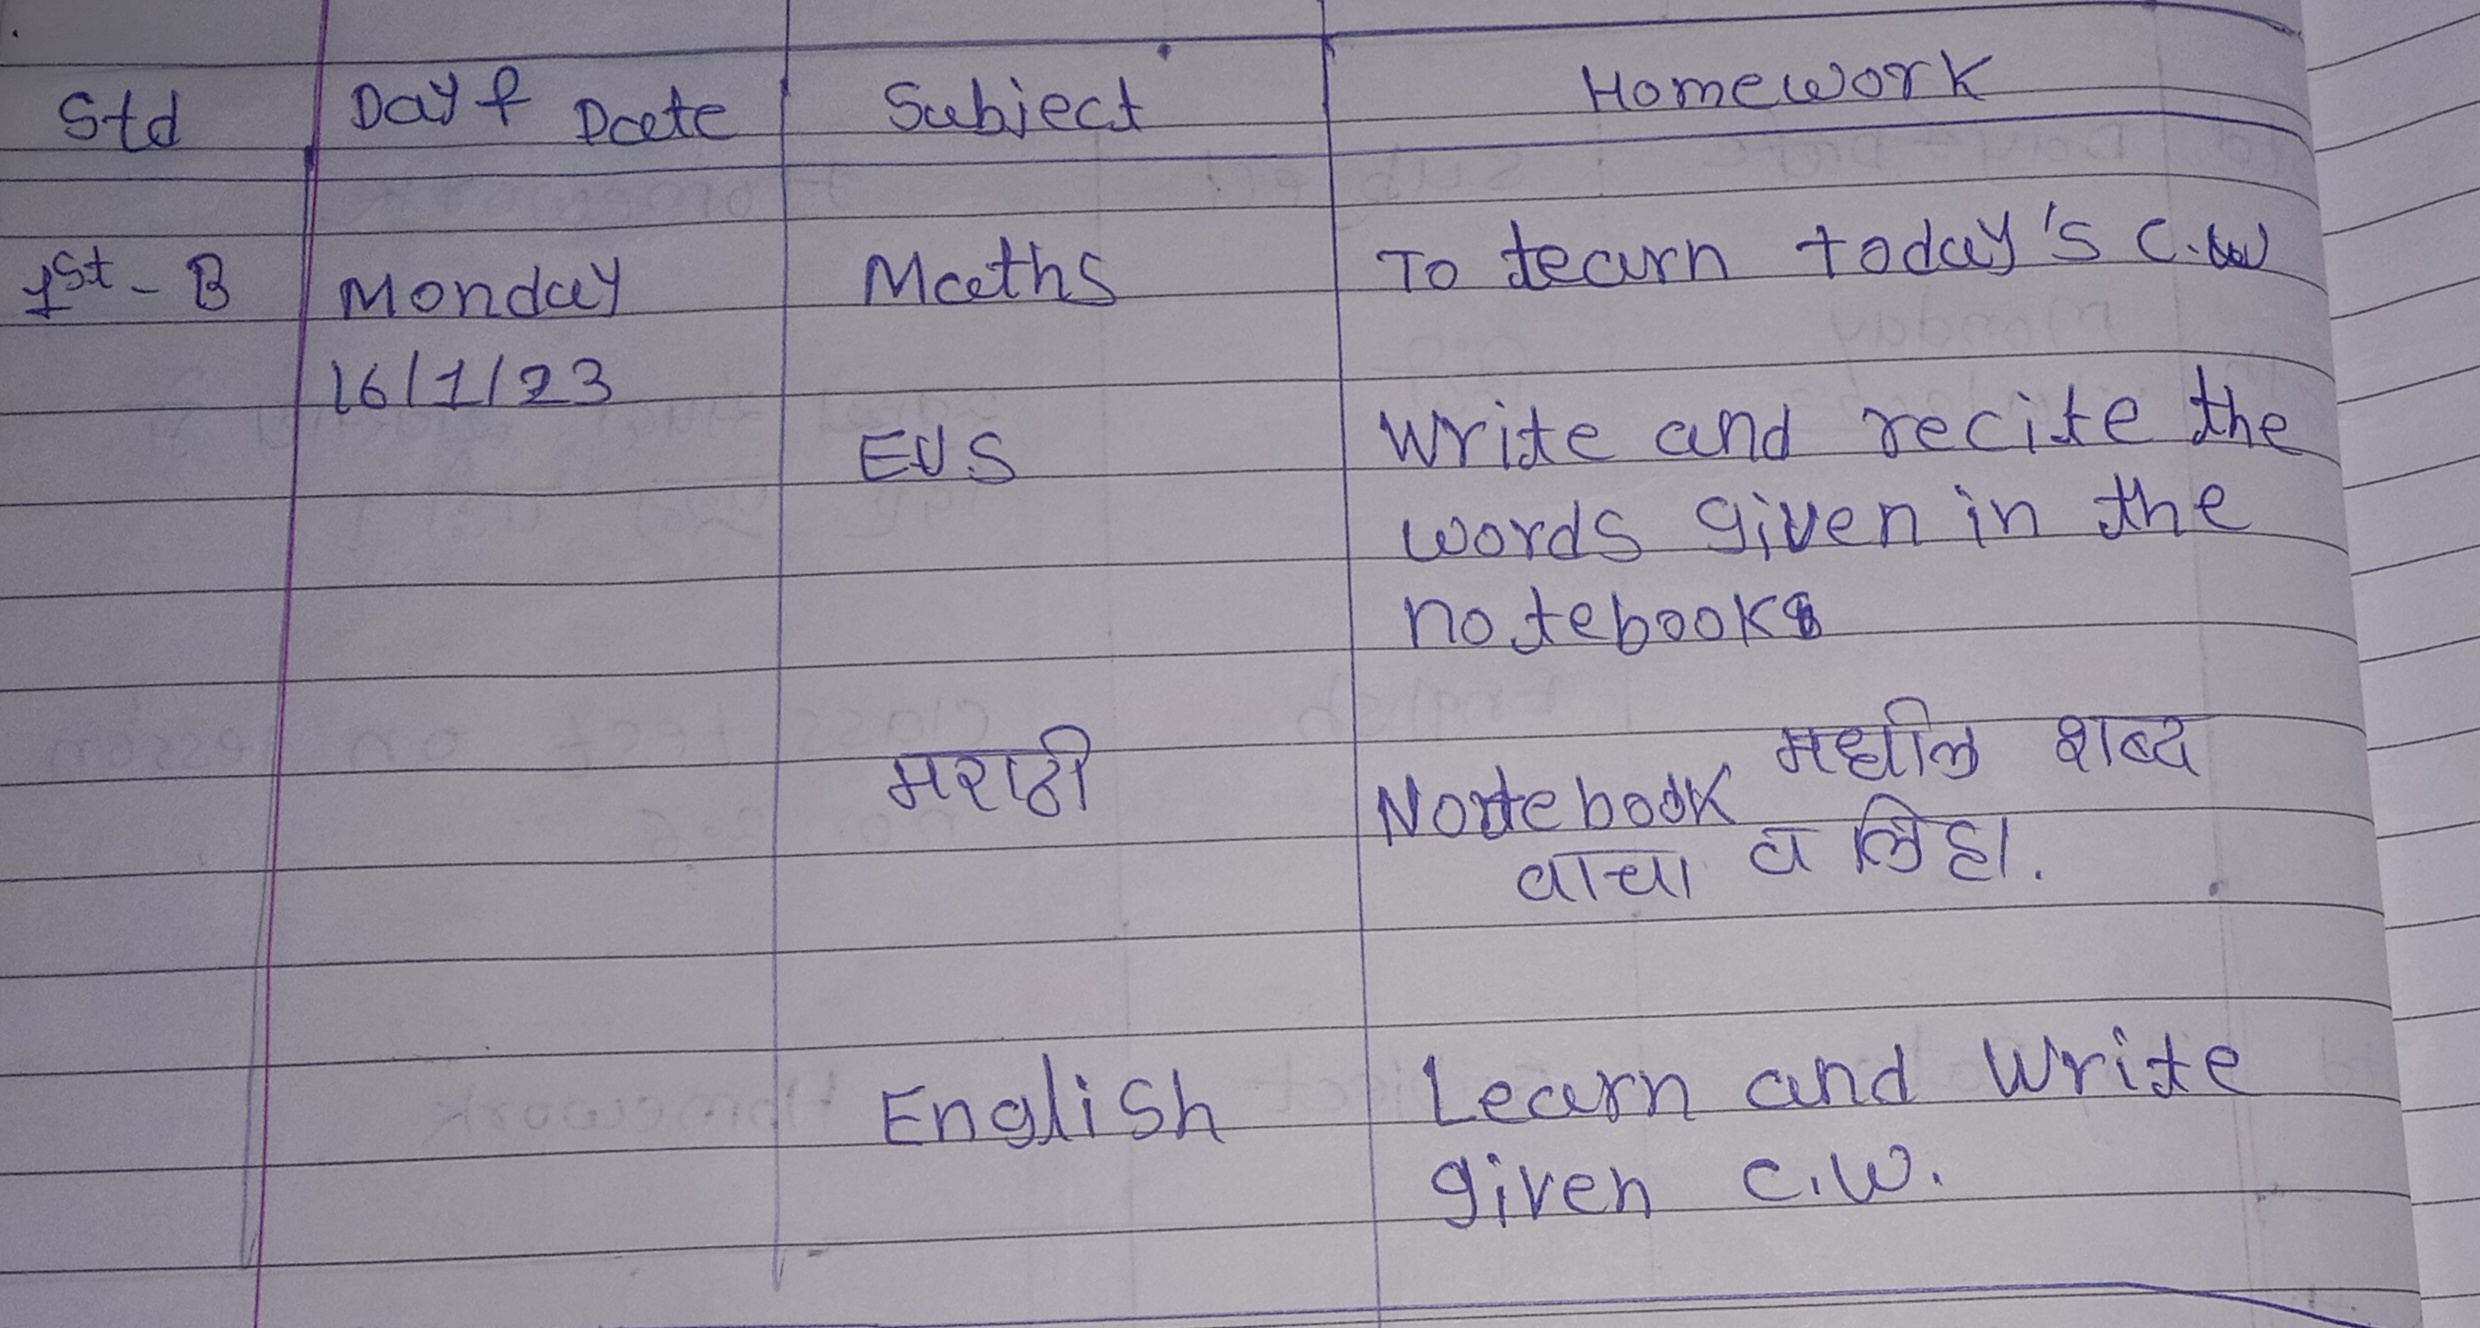 Std Day & Date Subject Homework
1st - B Monday Maths To learn today's C.W
16/1/23
EVS Write and recite the
words given in the
notebooks
मराठी Notebook मधील शब्द
वाचा व लिहा.
English Learn and Write
given C.W.